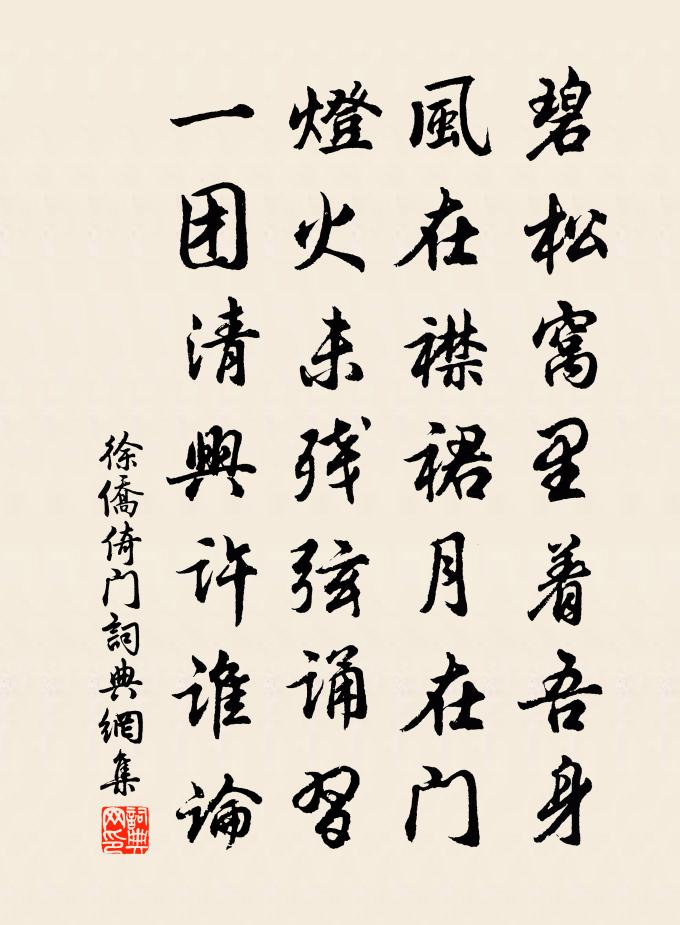 碧松窩里着吾身
風在襟裙月在门
燈火未残弦诵習
一团清興许谁论
徐僑倚门詞典網集
詞典网印